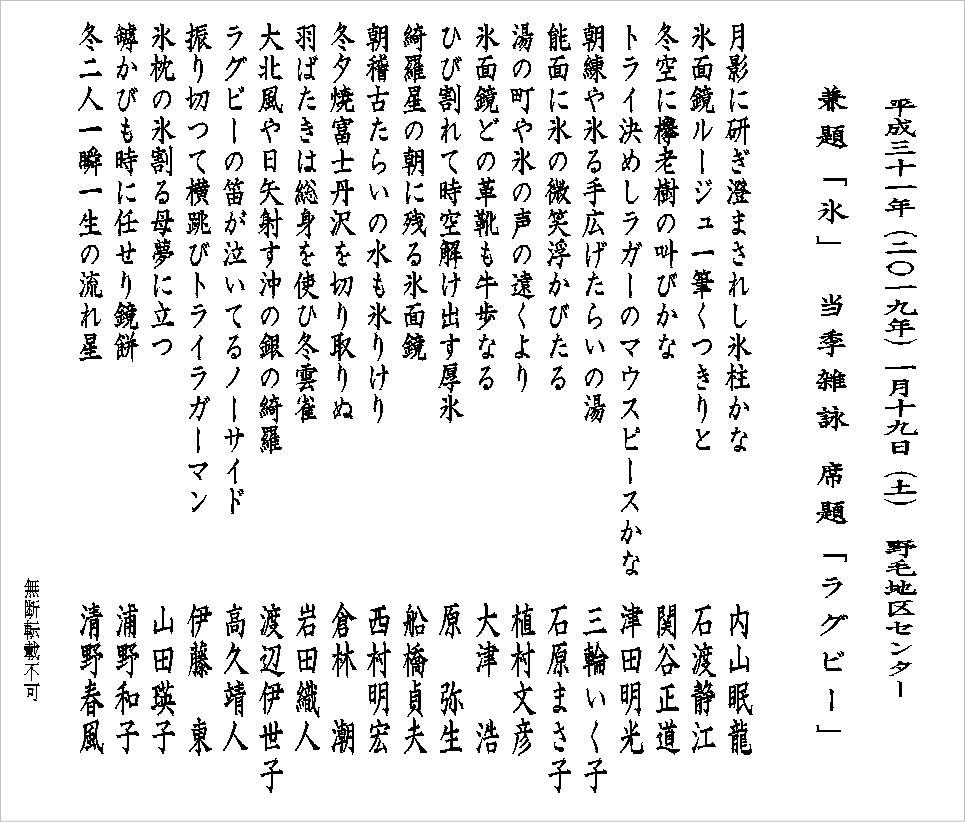 平成三十一年(二〇一九年)一月十九日(土) 野毛地区センター
兼題「氷」 当季雑詠 席題「ラグビー」
月影に研ぎ澄まされし氷柱かな 内山眠龍
氷面鏡ルージュ一筆くつきりと 石渡静江
冬空に欅老樹の叫びかな 関谷正道
トライ決めしラガーのマウスピースかな 津田明光
朝練や氷る手広げたらいの湯 三輪いく子
能面に氷の微笑浮かびたる 石原まさ子
湯の町や氷の声の遠くより 植村文彦
氷面鏡どの革靴も牛歩なる 大津 浩
ひび割れて時空解け出す厚氷 原 弥生
綺羅星の朝に残る氷面鏡 船橋貞夫
朝稽古たらいの水も氷りけり 西村明宏
冬夕焼富士丹沢を切り取りぬ 倉林 潮
羽ばたきは総身を使ひ冬雲雀 岩田織人
大北風や日矢射す沖の銀の綺羅 渡辺伊世子
ラグビーの笛が泣いてるノーサイド 高久靖人
振り切つて横跳びトライラガーマン 伊藤 東
氷枕の氷割る母夢に立つ 山田瑛子
罅かびも時に任せり鏡餅 浦野和子
冬二人一瞬一生の流れ星 清野春風
無断転載不可